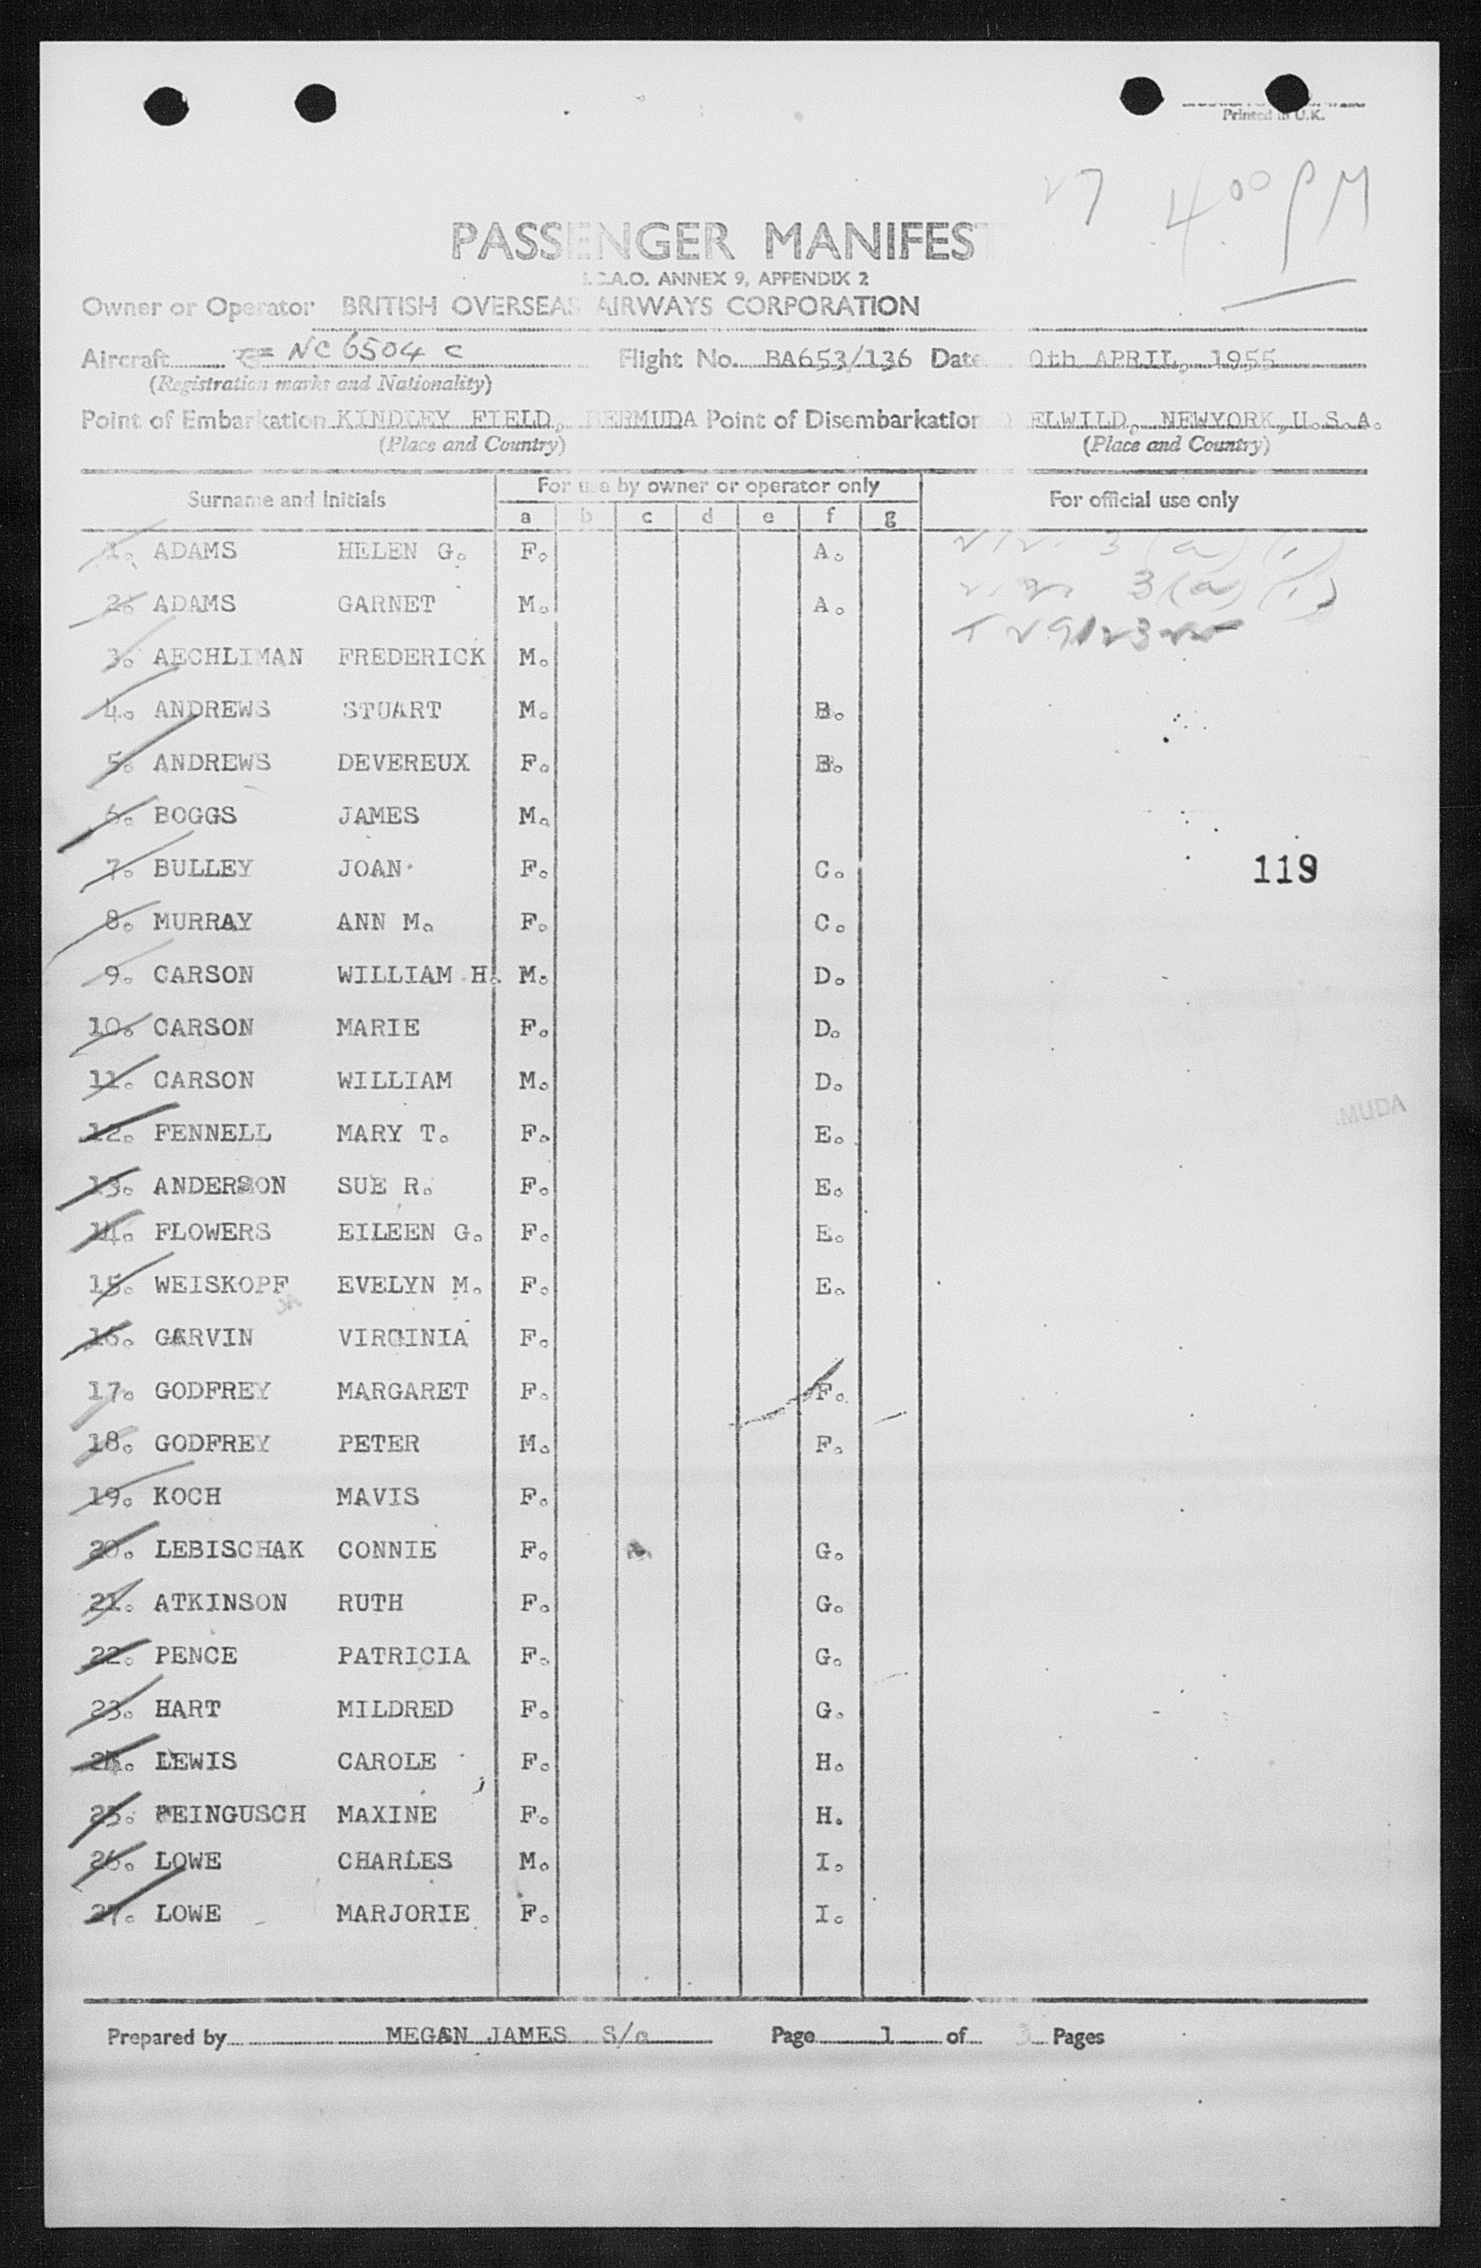 Printed in U.K.
4 00 PM
PASSENGER MANIFES
I.C.A.O. ANNEX 9, APPENDIX 2
Owner or Operator BRITISH OVERSEAS AIRWAYS CORPORATION
Aircraft NC 6504 C Flight No. BA653/136 Date 0th APRIL, 1955
(Registration marks and Nationality)
Point of Embarkation KINDLEY FIELD, BERMUDA Point of Disembarkation ELWILD, NEWYORK, U.S.A.
(Place and Country) (Place and Country)
Surname and Initials For use by owner or operator only For official use only
a b c d e f g
1. ADAMS HELEN G. F. A. 3 (a) (1)
2. ADAMS GARNET M. A. 3 (a) (1)
3. AECHLIMAN FREDERICK M.
4. ANDREWS STUART M. B.
5. ANDREWS DEVEREUX F. B.
6. BOGGS JAMES M.
7. BULLEY JOAN F. C. 119
8. MURRAY ANN M. F. C.
9. CARSON WILLIAM H. M. D.
10. CARSON MARIE F. D.
11. CARSON WILLIAM M. D.
12. FENNELL MARY T. F. E.
MUDA
13. ANDERSON SUE R. F. E.
14. FLOWERS EILEEN G. F. E.
15. WEISKOPF EVELYN M. F. E.
16. GARVIN VIRGINIA F.
17. GODFREY MARGARET F. F.
18. GODFREY PETER M. F.
19. KOCH MAVIS F.
20. LEBISCHAK CONNIE F. G.
21. ATKINSON RUTH F. G.
22. PENCE PATRICIA F. G.
23. HART MILDRED F. G.
24. LEWIS CAROLE F. H.
25. FEINGUSCH MAXINE F. H.
26. LOWE CHARLES M. I.
27. LOWE MARJORIE F. I.
Prepared by MEGAN JAMES S/a Page 1 of 3 Pages